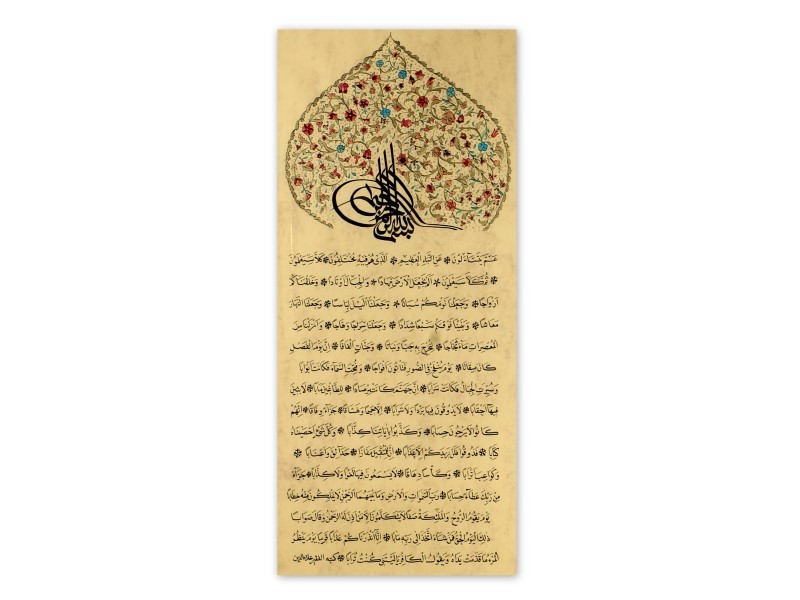 بسم الله الرحمن الرحيم
عَمَّ يَتَسَاءَلُونَ ❋ عَنِ النَّبَإِ الْعَظِيمِ ❋ الَّذِي هُمْ فِيهِ مُخْتَلِفُونَ ❋ كَلَّا سَيَعْلَمُونَ
❋ ثُمَّ كَلَّا سَيَعْلَمُونَ ❋ أَلَمْ نَجْعَلِ الْأَرْضَ مِهَادًا ❋ وَالْجِبَالَ أَوْتَادًا ❋ وَخَلَقْنَاكُمْ
أَزْوَاجًا ❋ وَجَعَلْنَا نَوْمَكُمْ سُبَاتًا ❋ وَجَعَلْنَا اللَّيْلَ لِبَاسًا ❋ وَجَعَلْنَا النَّهَارَ
مَعَاشًا ❋ وَبَنَيْنَا فَوْقَكُمْ سَبْعًا شِدَادًا ❋ وَجَعَلْنَا سِرَاجًا وَهَّاجًا ❋ وَأَنْزَلْنَا مِنَ
الْمُعْصِرَاتِ مَاءً ثَجَّاجًا ❋ لِنُخْرِجَ بِهِ حَبًّا وَنَبَاتًا ❋ وَجَنَّاتٍ أَلْفَافًا ❋ إِنَّ يَوْمَ الْفَصْلِ
كَانَ مِيقَاتًا ❋ يَوْمَ يُنْفَخُ فِي الصُّورِ فَتَأْتُونَ أَفْوَاجًا ❋ وَفُتِحَتِ السَّمَاءُ فَكَانَتْ أَبْوَابًا
❋ وَسُيِّرَتِ الْجِبَالُ فَكَانَتْ سَرَابًا ❋ إِنَّ جَهَنَّمَ كَانَتْ مِرْصَادًا ❋ لِلطَّاغِينَ مَآبًا ❋ لَابِثِينَ
فِيهَا أَحْقَابًا ❋ لَا يَذُوقُونَ فِيهَا بَرْدًا وَلَا شَرَابًا ❋ إِلَّا حَمِيمًا وَغَسَّاقًا ❋ جَزَاءً وِفَاقًا ❋ إِنَّهُمْ
كَانُوا لَا يَرْجُونَ حِسَابًا ❋ وَكَذَّبُوا بِآيَاتِنَا كِذَّابًا ❋ وَكُلَّ شَيْءٍ أَحْصَيْنَاهُ
كِتَابًا ❋ فَذُوقُوا فَلَنْ نَزِيدَكُمْ إِلَّا عَذَابًا ❋ إِنَّ لِلْمُتَّقِينَ مَفَازًا ❋ حَدَائِقَ وَأَعْنَابًا
❋ وَكَوَاعِبَ أَتْرَابًا ❋ وَكَأْسًا دِهَاقًا ❋ لَا يَسْمَعُونَ فِيهَا لَغْوًا وَلَا كِذَّابًا ❋ جَزَاءً
مِنْ رَبِّكَ عَطَاءً حِسَابًا ❋ رَبِّ السَّمٰوَاتِ وَالْأَرْضِ وَمَا بَيْنَهُمَا الرَّحْمٰنِ لَا يَمْلِكُونَ مِنْهُ خِطَابًا
❋ يَوْمَ يَقُومُ الرُّوحُ وَالْمَلٰئِكَةُ صَفًّا لَا يَتَكَلَّمُونَ إِلَّا مَنْ أَذِنَ لَهُ الرَّحْمٰنُ وَقَالَ صَوَابًا
❋ ذٰلِكَ الْيَوْمُ الْحَقُّ فَمَنْ شَاءَ اتَّخَذَ إِلَى رَبِّهِ مَآبًا ❋ إِنَّا أَنْذَرْنَاكُمْ عَذَابًا قَرِيبًا يَوْمَ يَنْظُرُ
الْمَرْءُ مَا قَدَّمَتْ يَدَاهُ وَيَقُولُ الْكَافِرُ يَا لَيْتَنِي كُنْتُ تُرَابًا ❋ كتبه الفقير